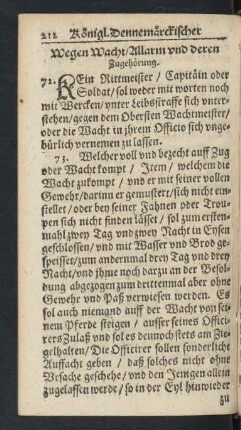 212 Königl. Dennemärckischer
Wegen Wacht / Allarm vnd deren
Zugehörung.
72. KEin Rittmeister / Capitäin oder
Soldat / sol weder mit worten noch
mit Wercken / vnter Leibsstraffe sich vnter-
stehen / gegen dem Obersten Wachtmeister /
oder die Wacht in jhrem Officio sich vnge-
bürlich vernemen zu lassen.
73. Welcher voll vnd bezecht auff Zug
oder Wacht kompt / Item / welchem die
Wacht zukompt / vnd er mit seiner vollen
Gewehr / darin er gemustert / sich nicht ein-
stellet / oder bey seiner Fahnen oder Trou-
pen sich nicht finden lässet / sol zum ersten-
mahl zwey Tag vnd zwey Nacht in Eysen
geschlossen / vnd mit Wasser vnd Brod ge-
speisset / zum andernmal drey Tag vnd drey
Nacht / vnd jhme noch darzu an der Besol-
dung abgezogen zum drittenmal aber ohne
Gewehr vnd Paß verwiesen werden. Es
sol auch niemand auff der Wacht von sei-
nem Pferde steigen / ausser seines Offici-
rers Zulaß vnd sol es dennoch stets am Zü-
gel halten / Die Officirer sollen sonderliche
Auffacht geben / daß solches nicht ohne
Vrsache geschehe / vnd den Jenigen allein
zugelassen werde / so in der Eyl hinwieder
zu